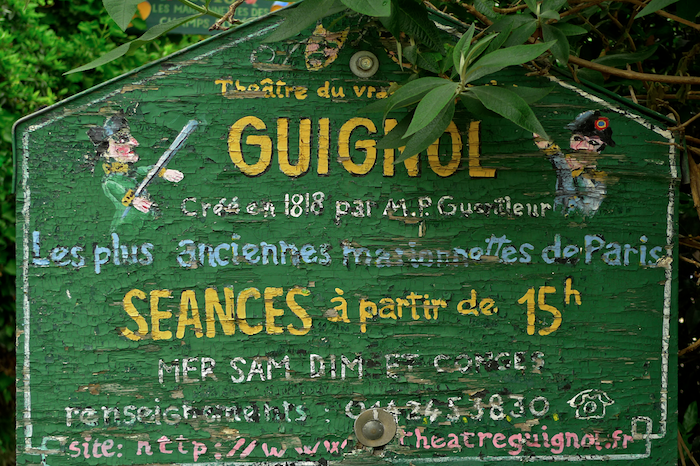 Théâtre du
GUIGNOL
Créé en 1818 par M.P.
Les plus anciennes marionnettes de Paris
SEANCES à partir de 15h
MER SAM DIM ET CONGES
renseignements : 0142453830
site: http://www theatreguignol.fr